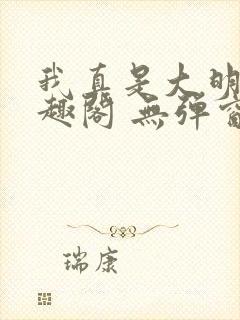 我真是大明
趣阁 無弹窗
瑞康